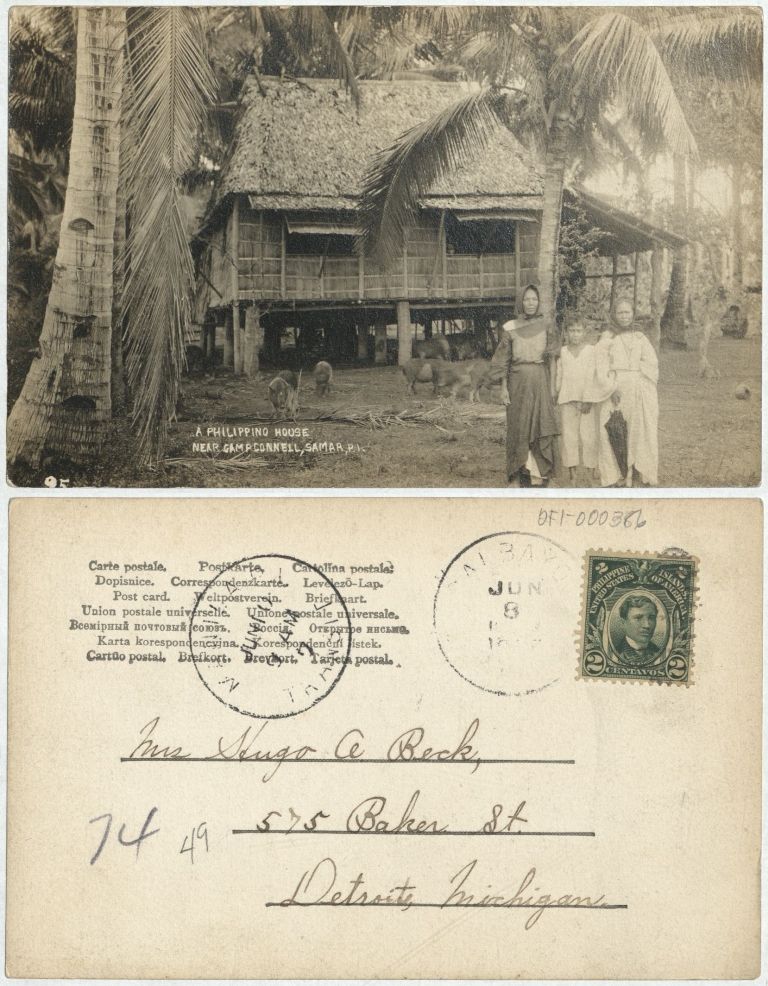 A PHILIPPINO HOUSE
NEAR CAMP CONNELL, SAMAR, P.I.
95
DF1-000366
Carte postale. Postkarte. Cartolina postale:
Dopisnice. Correspondenzkarte. Levelező-Lap.
Post card. Weltpostverein. Briefkaart.
Union postale universelle. Unione postale universale.
Всемірный почтовый союзъ. Россія. Открытое письмо.
Karta korespondencyjna. Korespondenční lístek.
Cartão postal. Brefkort. Brevkort. Tarjeta postal.
JUN
8
JUN
AM
PHILIPPINE ISLANDS
UNITED STATES OF AMERICA
2 CENTAVOS 2
Mrs Hugo A Beck,
575 Baker St.
Detroit, Michigan.
74 49